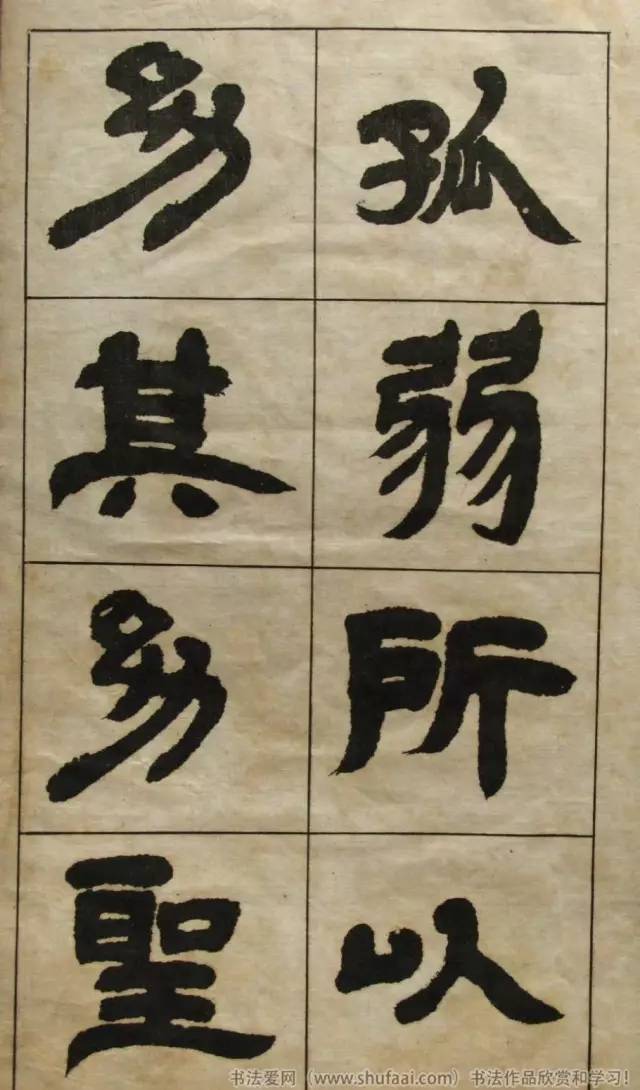 孤弱所以
幼其幼聖
书法爱网（www.shufaai.com）书法作品欣赏和学习！